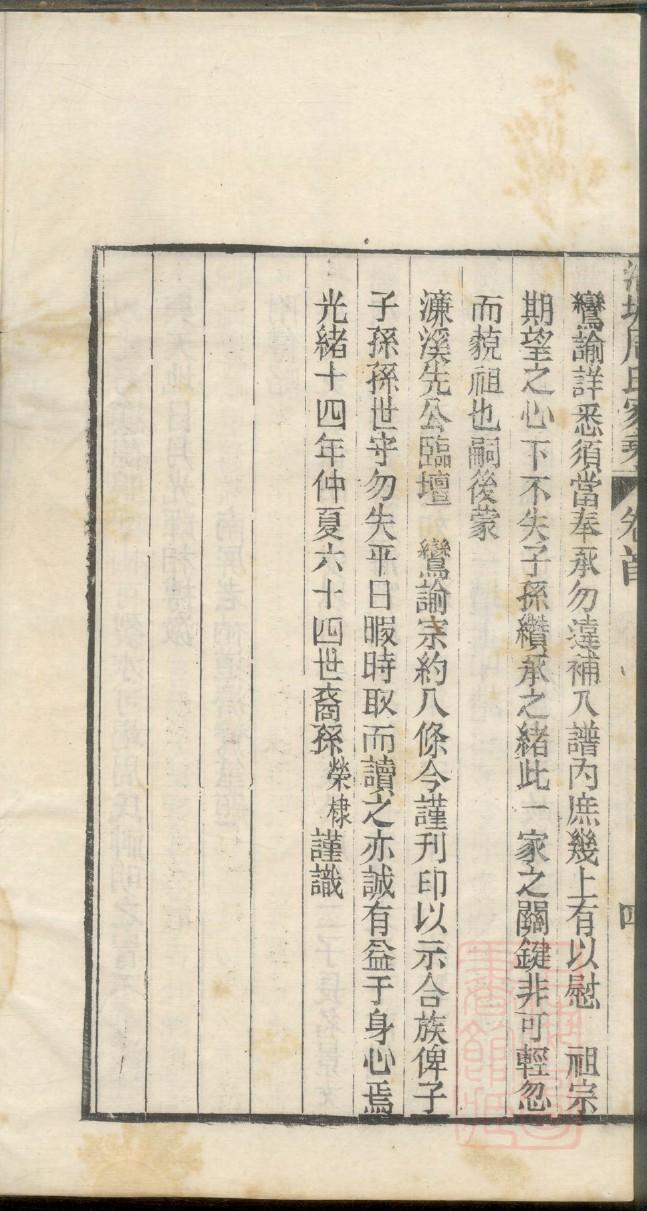 鸞諭詳悉須當奉承勿違補入譜內庶幾上有以慰　祖宗
期望之心下不失子孫纘承之緒此一家之關鍵非可輕忽
而藐祖也嗣後蒙
濂溪先公臨壇　鸞諭宗約八條今謹刊印以示合族俾子
子孫孫世守勿失平日暇時取而讀之亦誠有益于身心焉
光緒十四年仲夏六十四世裔孫榮棣謹識
周氏家乘
卷首
四